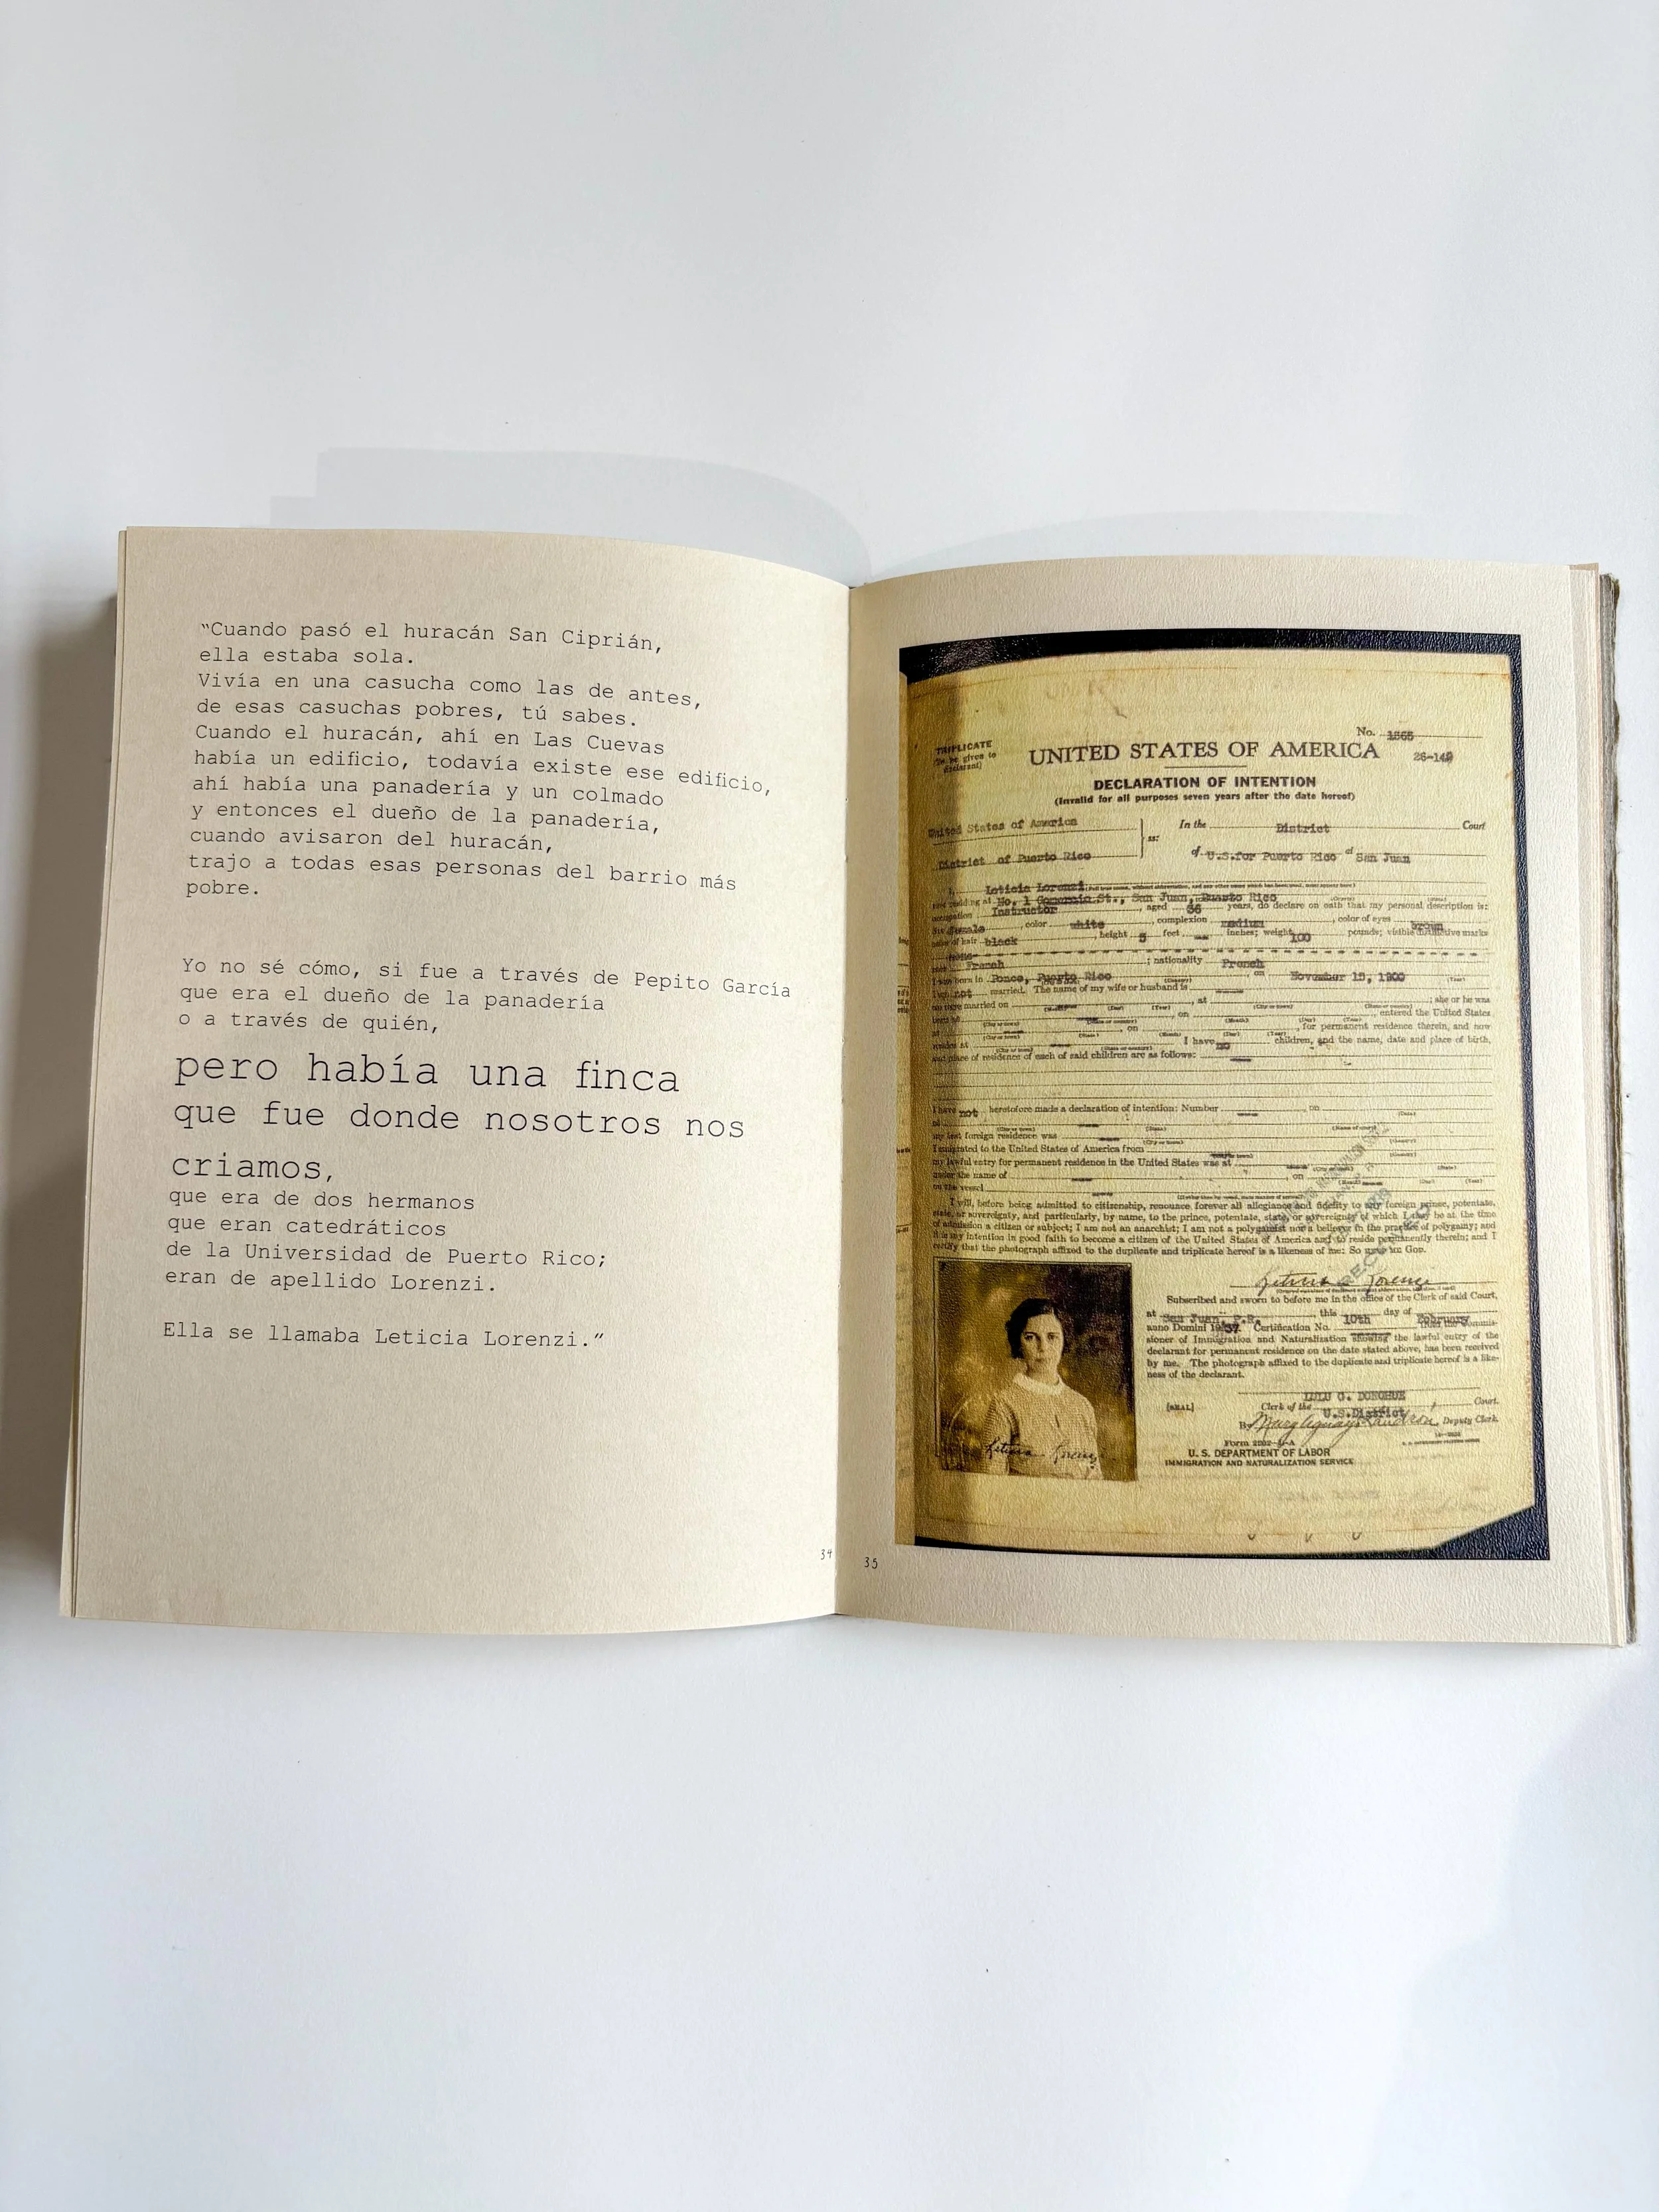 “Cuando pasó el huracán San Ciprián,
ella estaba sola.
Vivía en una casucha como las de antes,
de esas casuchas pobres, tú sabes.
Cuando el huracán, ahí en Las Cuevas
había un edificio, todavía existe ese edificio,
ahí había una panadería y un colmado
y entonces el dueño de la panadería,
cuando avisaron del huracán,
trajo a todas esas personas del barrio más
pobre.
Yo no sé cómo, si fue a través de Pepito García
que era el dueño de la panadería
o a través de quién,
pero había una finca
que fue donde nosotros nos
criamos,
que era de dos hermanos
que eran catedráticos
de la Universidad de Puerto Rico;
eran de apellido Lorenzi.
Ella se llamaba Leticia Lorenzi.”
34
35
No. 1565
TRIPLICATE
(To be given to
Declarant)
UNITED STATES OF AMERICA
DECLARATION OF INTENTION
(Invalid for all purposes seven years after the date hereof)
United States of America
District of Puerto Rico
ss:
In the District Court
of U.S. for Puerto Rico at San Juan
I, Leticia Lorenzi
now residing at No. 1 St., San Juan, Puerto Rico
occupation Instructor, aged 36 years, do declare on oath that my personal description is:
Sex female, color white, complexion medium, color of eyes brown
color of hair black, height 5 feet inches; weight 100 pounds; visible distinctive marks
race French; nationality French
I was born in Ponce, Puerto Rico, on November 15, 1900
I am not married. The name of my wife or husband is
we were married on, at; she or he was
born at, on, entered the United States
at, on, for permanent residence therein, and now
resides at I have no children, and the name, date and place of birth,
and place of residence of each of said children are as follows:
I have not heretofore made a declaration of intention: Number, on
my last foreign residence was
I emigrated to the United States of America from
my lawful entry for permanent residence in the United States was at
under the name of
on the vessel
I will, before being admitted to citizenship, renounce forever all allegiance and fidelity to any foreign prince, potentate,
state, or sovereignty, and particularly, by name, to the prince, potentate, state, or sovereignty of which I may be at the time
of admission a citizen or subject; I am not an anarchist; I am not a polygamist nor a believer in the practice of polygamy; and
it is my intention in good faith to become a citizen of the United States of America and to reside permanently therein; and I
certify that the photograph affixed to the duplicate and triplicate hereof is a likeness of me: So help me God.
Leticia Lorenzi
Subscribed and sworn to before me in the office of the Clerk of said Court,
at San Juan, P.R. this 10th day of February
anno Domini 1937. Certification No. from the Commis-
sioner of Immigration and Naturalization showing the lawful entry of the
declarant for permanent residence on the date stated above, has been received
by me. The photograph affixed to the duplicate and triplicate hereof is a like-
ness of the declarant.
LULU C. DONOHUE
[SEAL] Clerk of the U.S. District Court.
By Deputy Clerk.
U. S. DEPARTMENT OF LABOR
IMMIGRATION AND NATURALIZATION SERVICE
Leticia Lorenzi